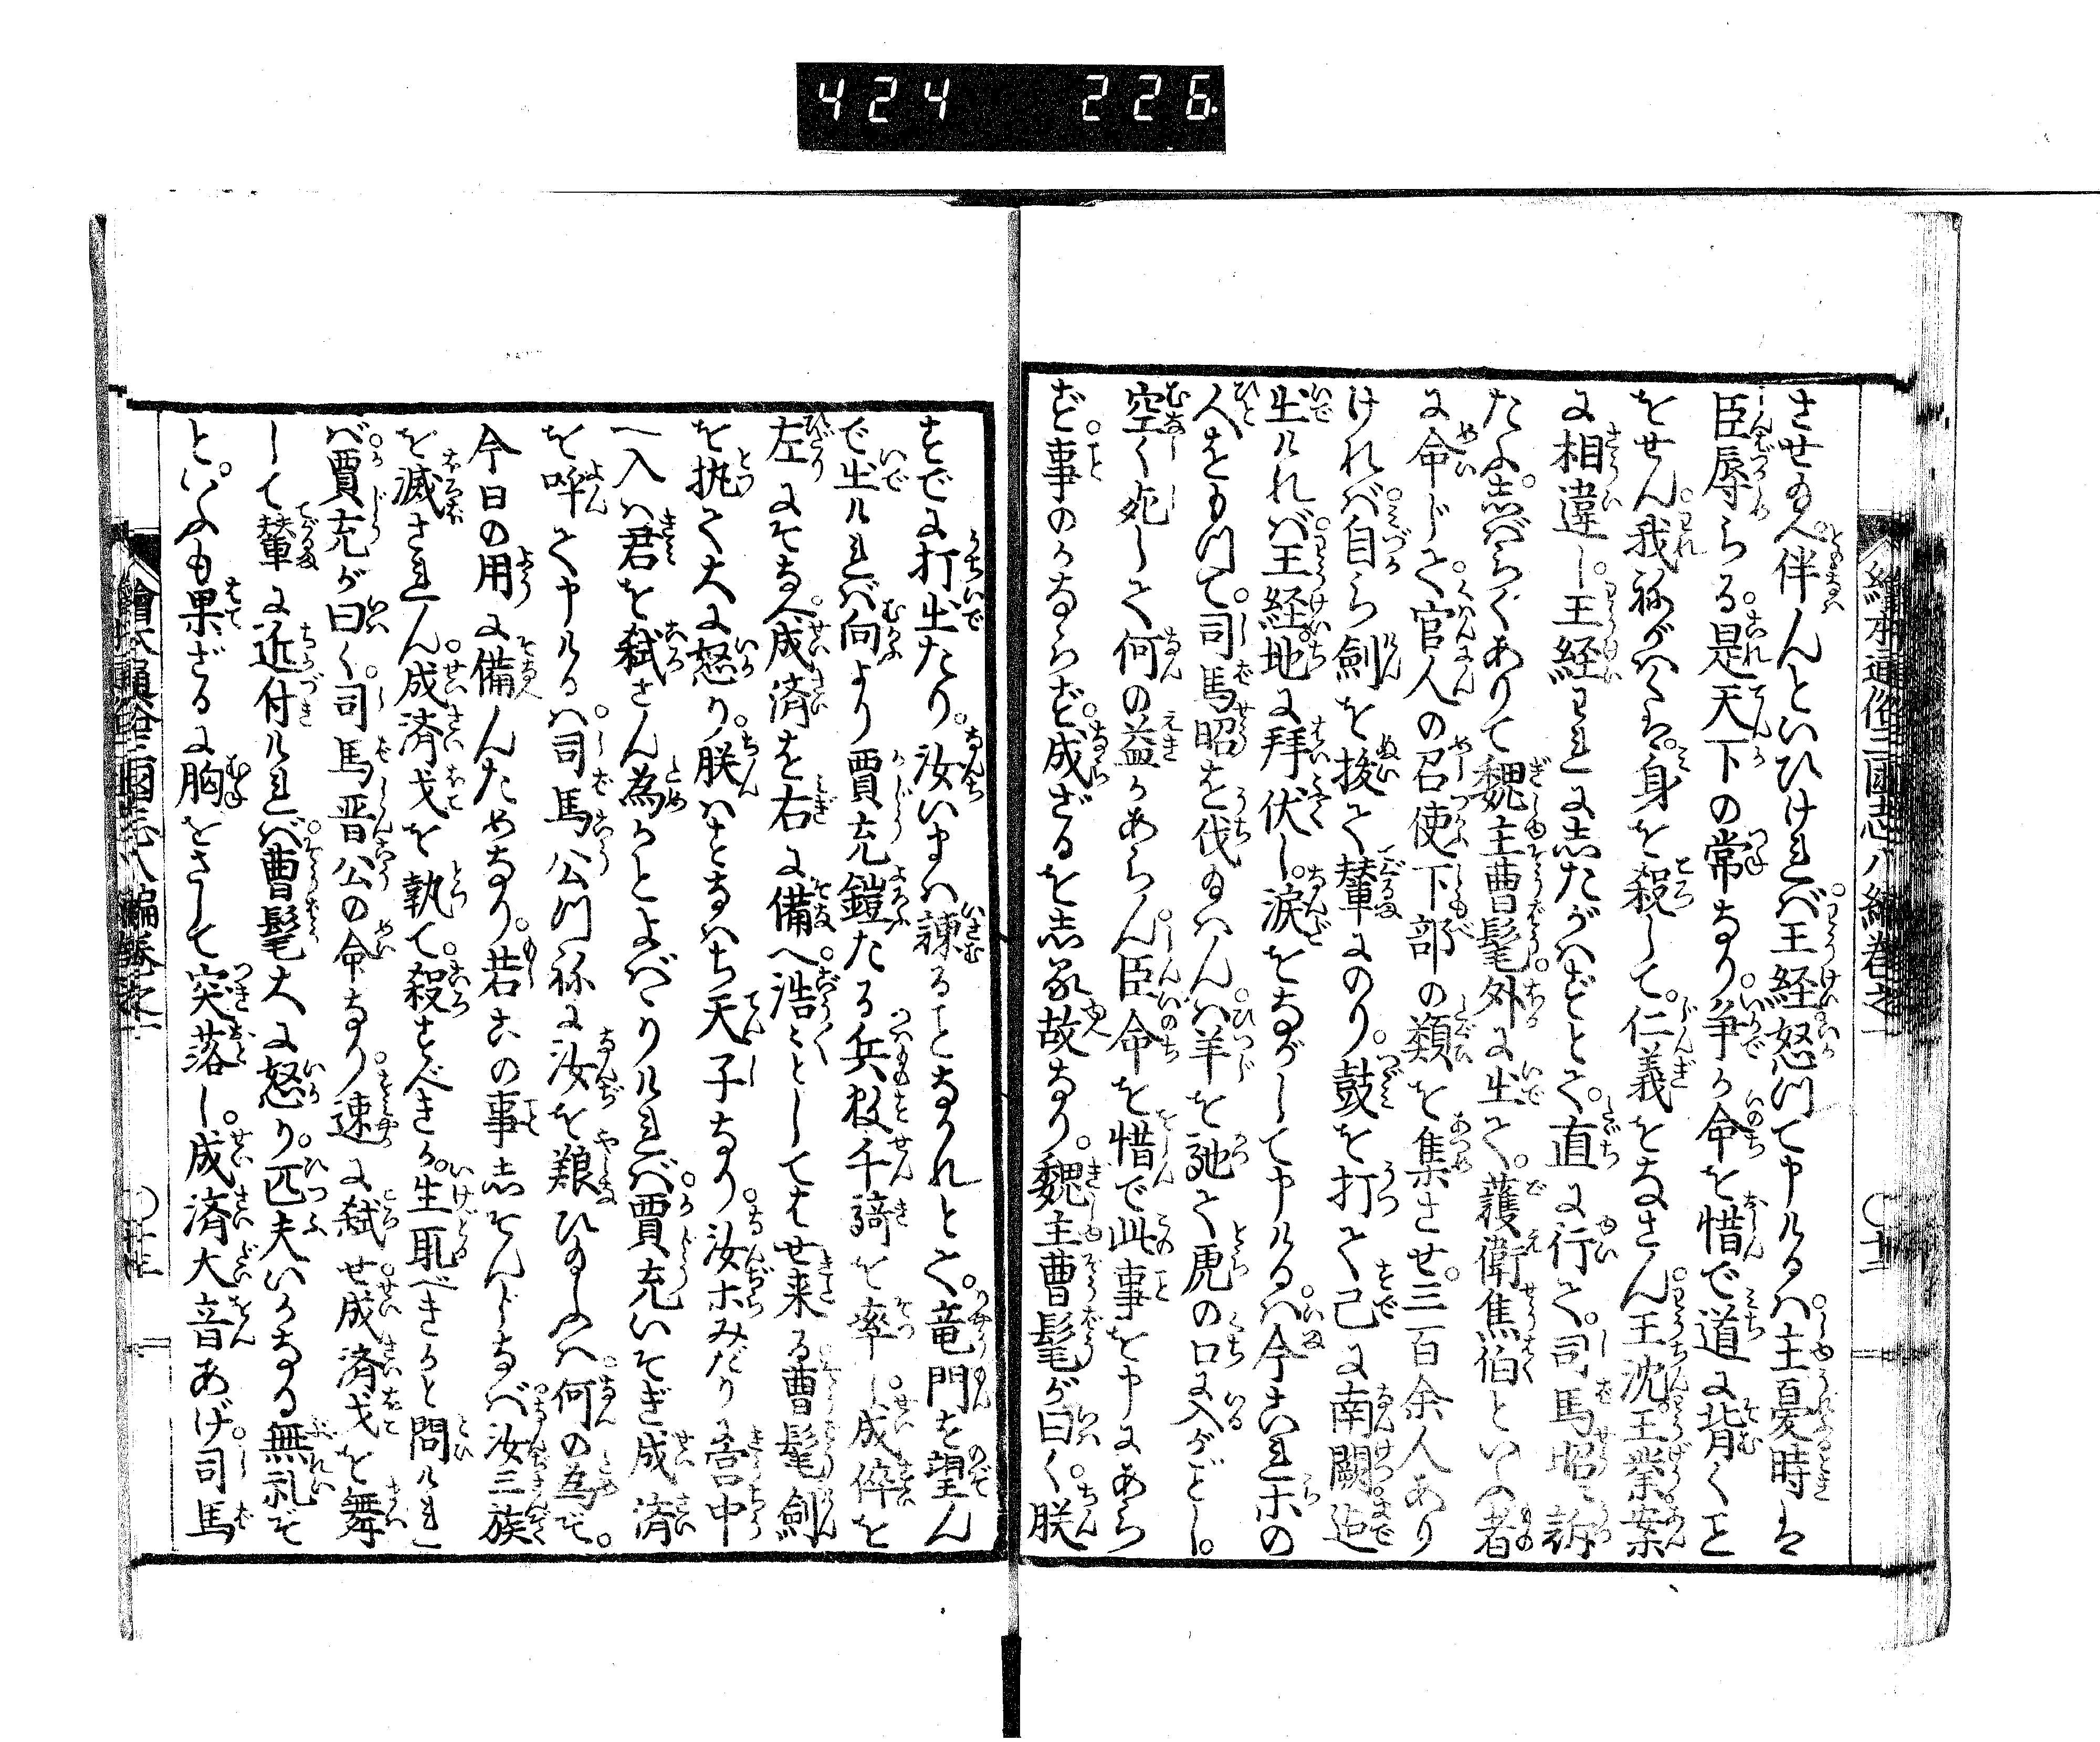 424 226
繪本通俗三國志八編巻之一
させ給へ伴んといひけれバ王経怒つて申しけるハ主憂時は
臣辱らる是天下の常なり争か命を惜で道に背くこと
をせん我祢がハくは身を殺して仁義をなさん王沈王業案
に相違し王経これに志たがハずとて直に行て司馬昭に訴
たふ志バらくありて魏主曹髦外に出て護衛焦伯といふ者
に命じて官人の召使下部の類を集させ三百余人あり
けれバ自ら剣を抜て輦にのり鼓を打て己に南闕迄
出けれバ王経地に拝伏し涙をながして申しけるハ今これホの
人をもつて司馬昭を伐給ハんハ羊を馳て虎の口に入がごとし
空く死して何の益かあらん臣命を惜で此事を申にあら
ず事のかならず成ざるを志る故なり魏主曹髦が曰く朕
すでに打出たり汝いまハ諫ることなかれとて竜門を望ん
で出けれバ向より賈充鎧たる兵数千騎を率し成倅を
左にそなへ成済を右に備へ浩々としてはせ来る曹髦剣
を執て大に怒り朕ハすなハち天子なり汝ホみだりに宮中
へ入ハ君を弑さん為かとよバゝりけれバ賈充いそぎ成済
を呼て申しけるハ司馬公つねに汝を艱ひ給ふハ何の為ぞ
今日の用に備んためなり若この事志そんじなバ汝三族
を滅されん成済戈を執て殺すべきか生取べきかと問けれ
バ賈充が曰く司馬晋公の命なり速に弑せ成済戈を舞
して輦に近付けれバ曹髦大に怒り匹夫いかなる無礼ぞ
といふも果ざるに胸をさして突落し成済大音あげ司馬